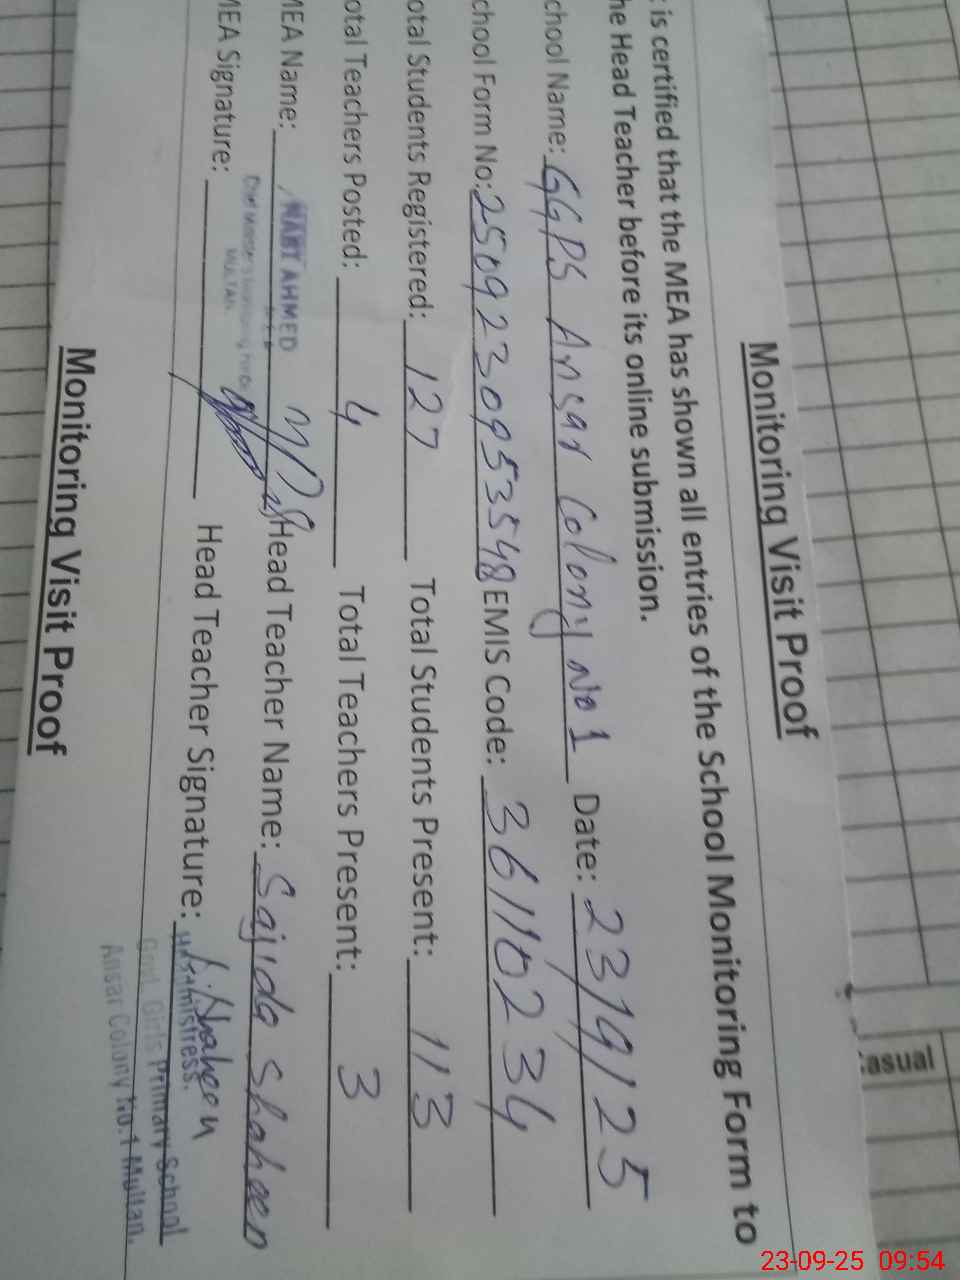 Monitoring Visit Proof
is certified that the MEA has shown all entries of the School Monitoring Form to
he Head Teacher before its online submission.
chool Name: GGPS Ansar Colony No 1 Date: 23/9/25
chool Form No: 2509230953548 EMIS Code: 36110234
otal Students Registered: 127 Total Students Present: 113
otal Teachers Posted: 4 Total Teachers Present: 3
MEA Name: AHMED Head Teacher Name: Sajida Shaheen
MULTAN.
MEA Signature: Head Teacher Signature: Shaheen
Headmistress.
Govt. Girls Primary School
Ansar Colony No.1 Multan.
Monitoring Visit Proof
asual
23-09-25 09:54